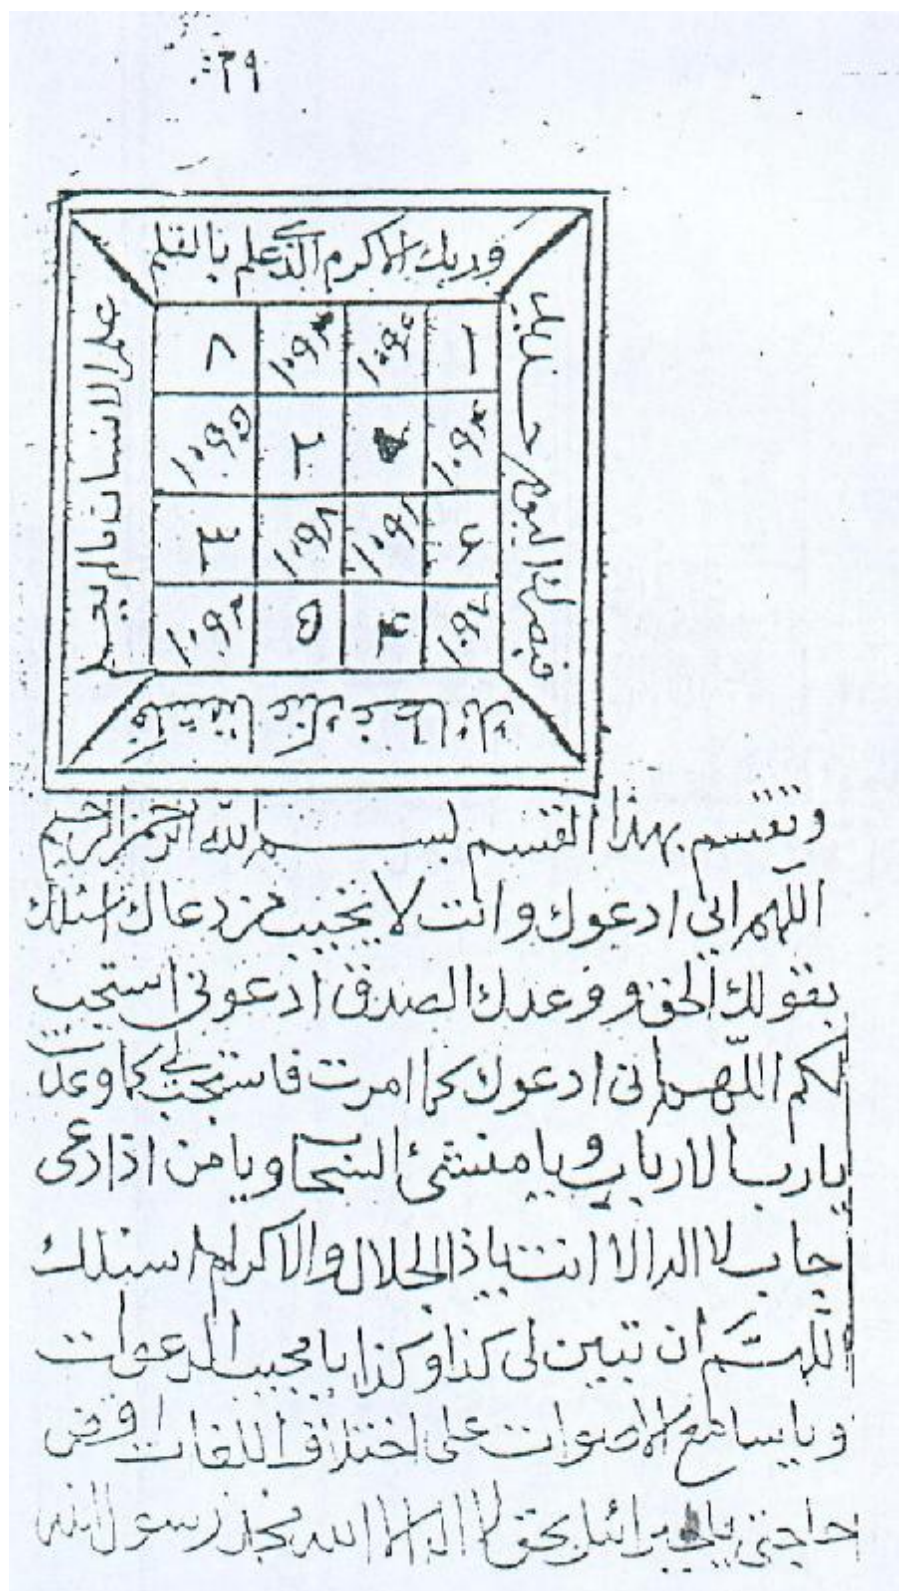 ٢٩
وربك الاكرم الذي علم بالقلم
فبصرك اليوم حديد
علم الانسان ما لم يعلم
فكشفنا عنك غطاءك
وتقسم بهذا القسم بسم الله الرحمن الرحيم
اللهم اني ادعوك وانت لا تخيب من دعاك اسئلك
بقولك الحق ووعدك الصدق ادعوني استجب
لكم اللهم اني ادعوك كما امرت فاستجب لي كما وعدت
يارب الارباب ويا منشئ السحاب ويا من اذا دعى
اجاب لا اله الا انت ياذا الجلال والاكرام اسئلك
اللهم ان تبين لي كذا وكذا يا مجيب الدعوات
ويا سامع الاصوات على اختلاف اللغات اقض
حاجتي يا جبرائيل بحق لا اله الا الله محمد رسول الله